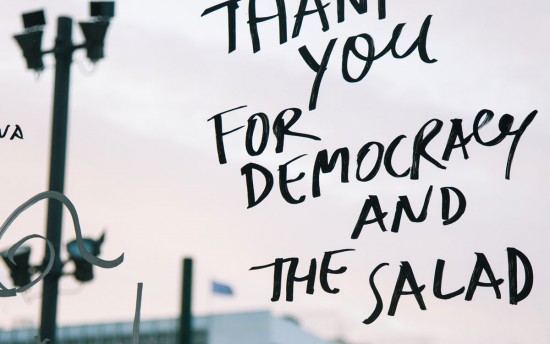 THANK
YOU
FOR
DEMOCRACY
AND
THE SALAD